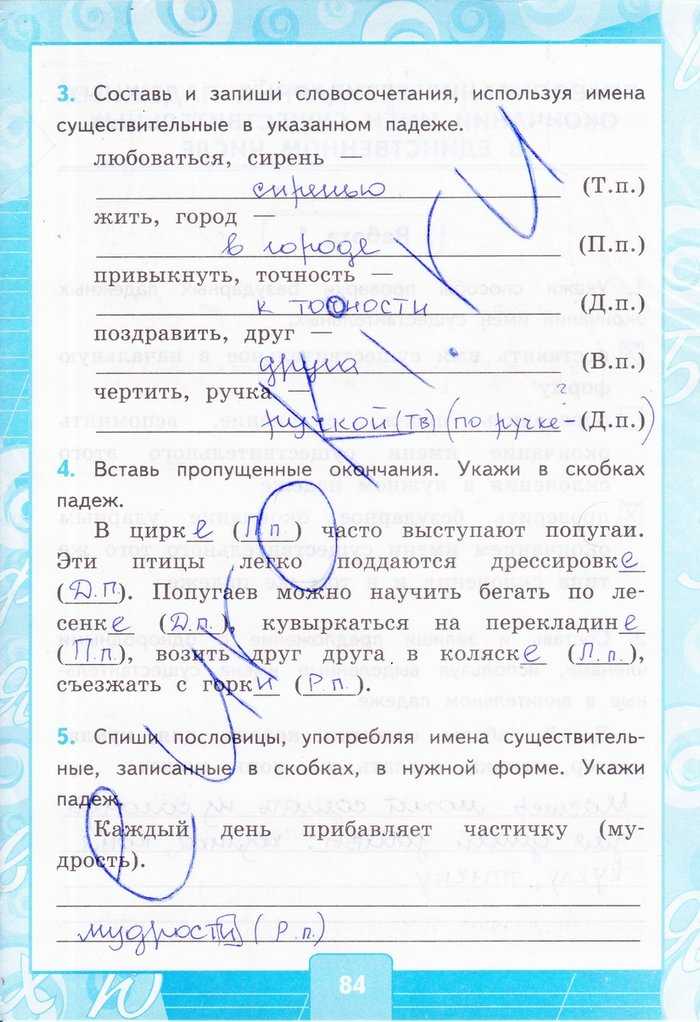 3. Составь и запиши словосочетания, используя имена
существительные в указанном падеже.
любоваться, сирень —
сиренью (Т.п.)
жить, город —
в городе (П.п.)
привыкнуть, точность —
к точности (Д.п.)
поздравить, друг —
друга (В.п.)
чертить, ручка — ?
ручкой (тв) (по ручке - (Д.п.))
4. Вставь пропущенные окончания. Укажи в скобках
падеж.
В цирке (П.п.) часто выступают попугаи.
Эти птицы легко поддаются дрессировке
(Д.п.). Попугаев можно научить бегать по ле-
сенке (Д.п.), кувыркаться на перекладине
(П.п.), возить друг друга в коляске (П.п.),
съезжать с горки (Р.п.).
5. Спиши пословицы, употребляя имена существитель-
ные, записанные в скобках, в нужной форме. Укажи
падеж.
Каждый день прибавляет частичку (му-
дрость).
мудрости (Р.п.)
84